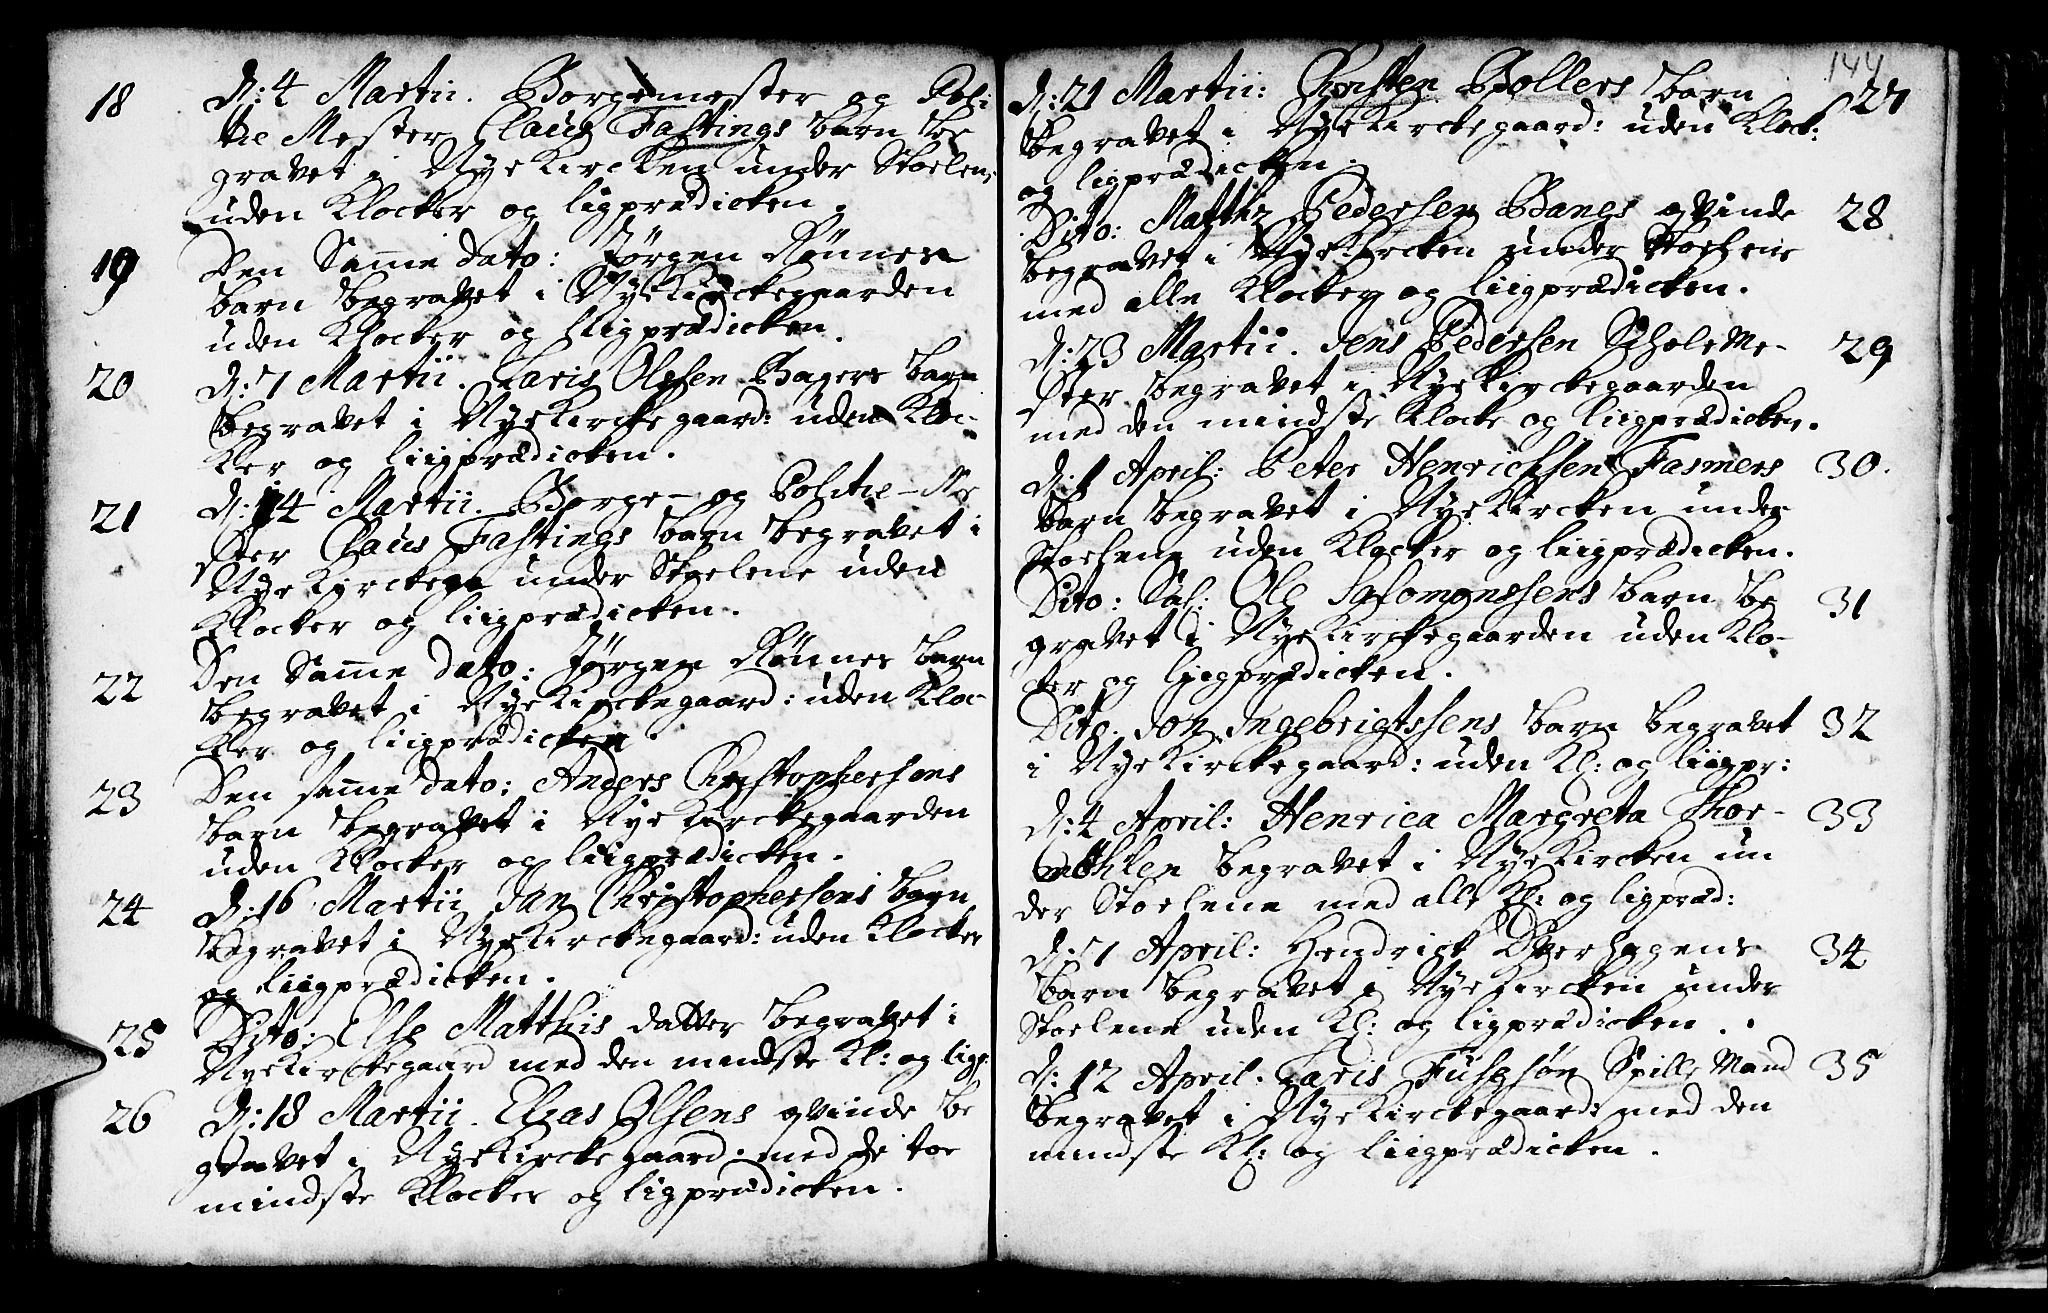 18 d: 4 Martii. Borgemester og Poli-
tie Mester Claus Fastings barn be
gravet i Nye Kircken under Stoelene
uden Klocker og ligprædicken.
19 Den Samme dato: Jørgen Rønnes
barn begravet i Nye Kirckegaarden
uden Klocker og Liigprædicken.
20 d: 7 Martii. Laris Olssen Bagers barn
begravet i Nye Kircke gaard: uden Kloc-
ker og liigprædicken.
21 d: 14 Martii. Borge- og Politie-Me
ster Claus Fastings barn begravet i
Nye Kircken under Stoelene uden
Klocker og liigprædicken.
22 Den Samme dato: Jørgen Rønnes barn
begravet i Nye Kirckegaard: uden Kloc-
ker og liigprædicken.
23 Den samme dato: Anders Christophersens
barn begravet i Nye Kirckegaarden
uden Klocker og liigprædicken.
24 d: 16 Martii Jan Christophersens barn
begravet i Nye Kirckegaard: uden Klocker
og liigprædicken.
25 Dito: Else Matthis datter begravet i
Nye Kirckegaard med den mindste Kl: og ligp:
26 d: 18 Martii. Elias Olsens qvinde be
gravet i Nye Kircke gaard: med de toe
mindste Klocker og ligprædicken.
144
d: 21 Martii: Christen Bollers barn 27
begravet i Nye Kirckegaard: uden Klock:
og ligprædicken.
Dito: Matthis Pedersen Banes qvinde 28
begravet i Nye Kircken under Stoelene
med alle Klocker og liigprædicken.
d: 23 Martii. Jens Pedersen Schole Me- 29
ster begravet i Nye Kirckegaarden
med den mindste Klocke og liigprædicken.
d: 1 April: Peter Henrichsen Fasmers 30.
barn begravet i Nye Kircken under
Stoelene uden Klocker og liigprædicken.
Dito: Sal: Ole Salomonssens barn be 31
gravet i Nye Kirckegaarden uden Klo-
cker og liigprædicken.
Dito. Jon Ingebrigtssens barn begravet 32
i Nye Kirckegaard: uden Kl: og liigpr:
d: 4 April: Henrica Margreta Thor- 33
möhlen begravet i Nye Kircken un
der Stoelene med alle Kl: og ligpræd:
d: 7 April: Hendrick Overhagens 34
barn begravet i Nye Kircken under
Stoelene uden Kl: og ligprædicken.
d: 12 April. Laris Fusesøn Spille Mand 35
begravet i Nye Kirckegaard: med den
mindste Kl: og liigprædicken.